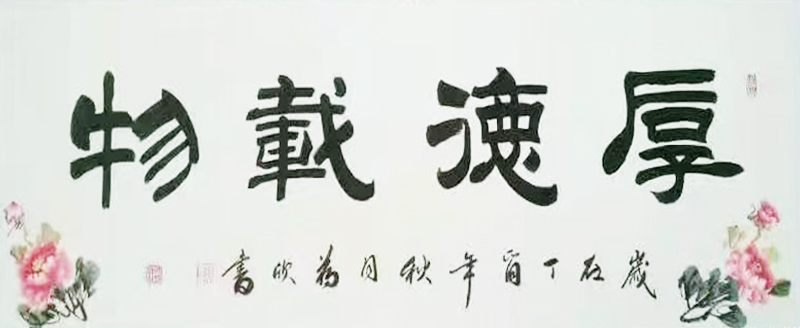 厚德載物
歲在丁酉年秋月為欣書